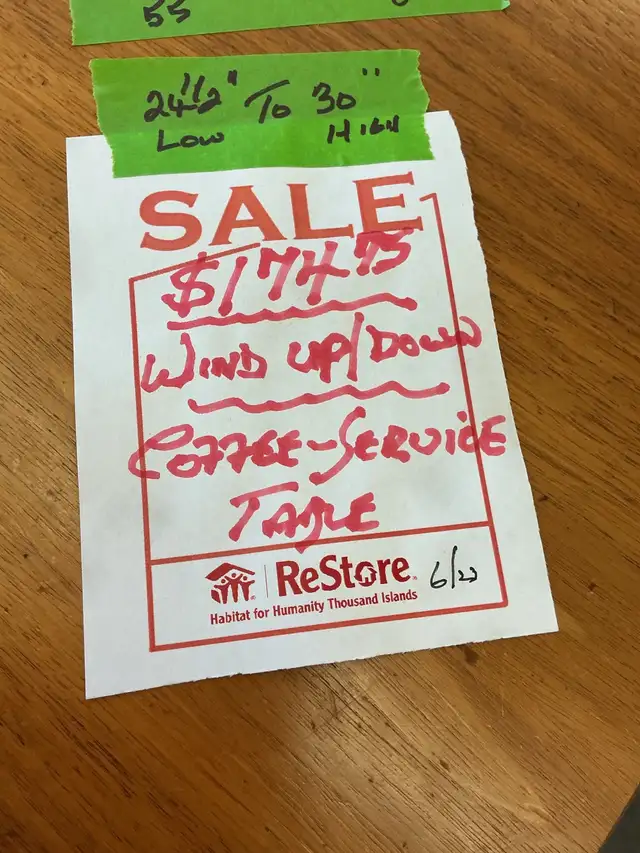 55
24 1/2" To 30"
Low High
SALE
$174.75
WIND UP/DOWN
COFFEE-SERVICE
TABLE
ReStore
6/23
Habitat for Humanity Thousand Islands